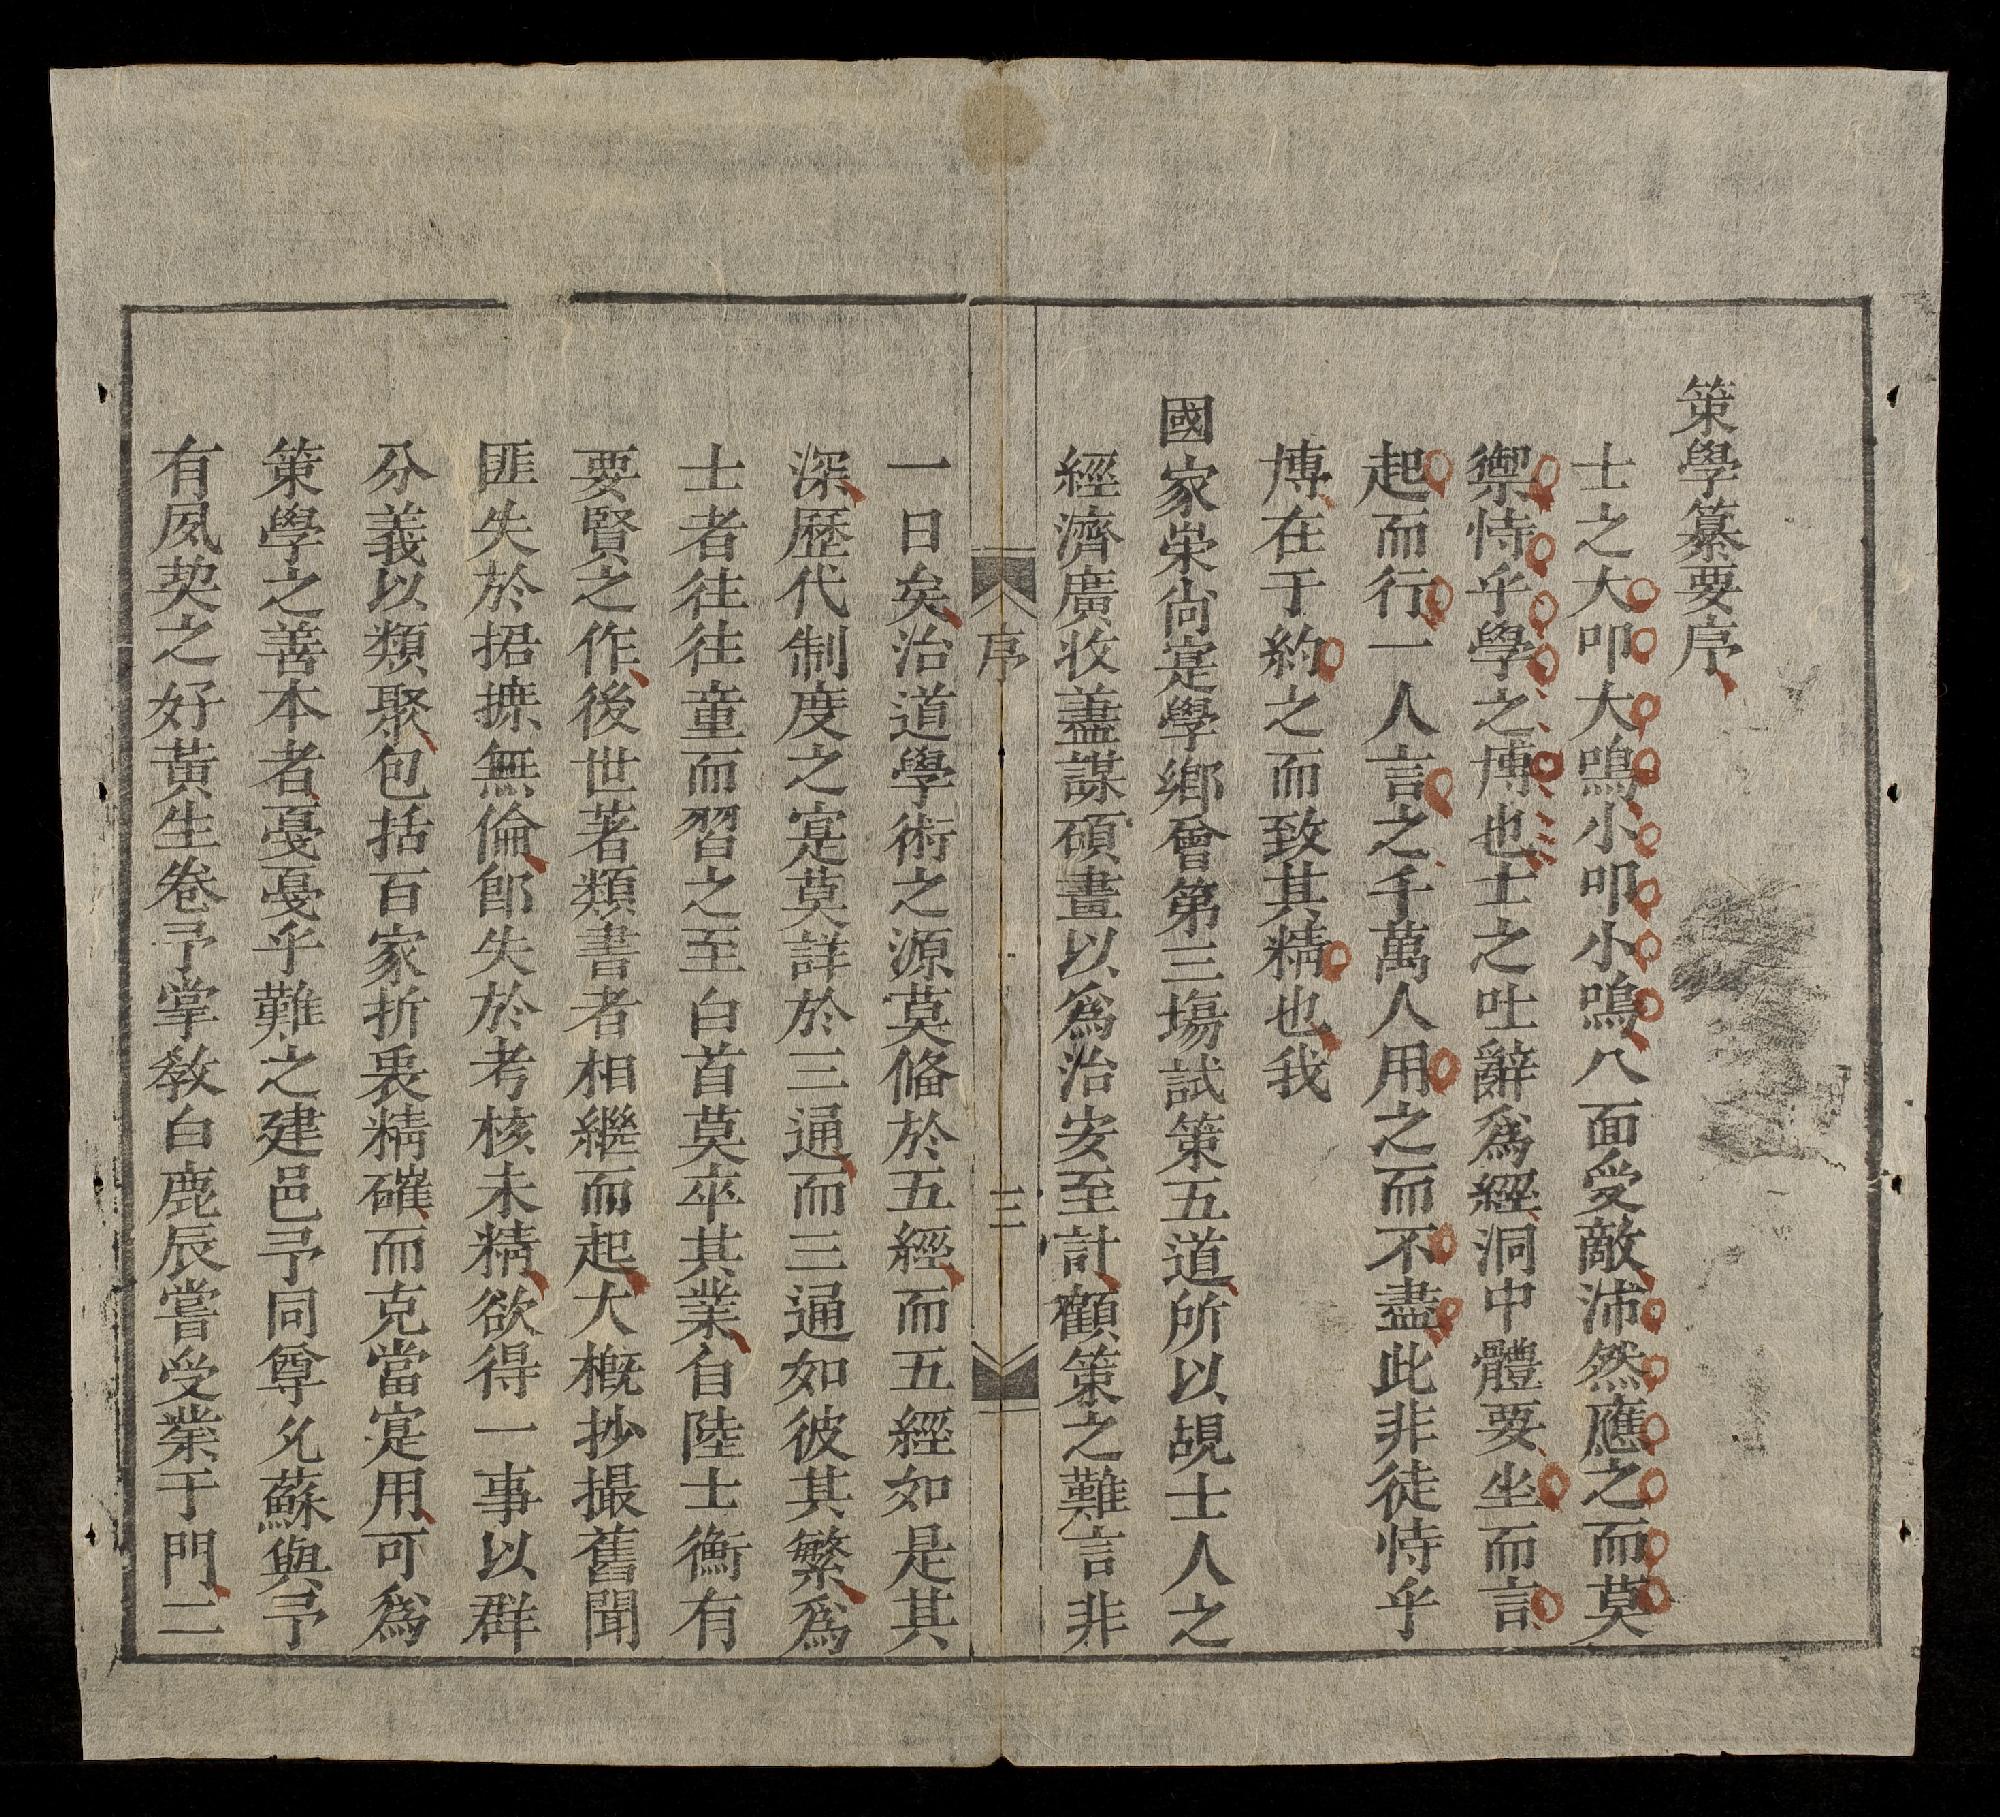 策學纂要序
士之大叩大鳴小叩小鳴八面受敵沛然應之而莫
禦恃乎學之博也士之吐辭爲經洞中體要坐而言
起而行一人言之千萬人用之而不盡此非徒恃乎
博在于約之而致其精也我
國家崇尚寔學鄉會第三塲試策五道所以覘士人之
經濟廣收蓋謀碩畫以爲治安至計顧策之難言非
序
三
一日矣治道學術之源莫俻於五經而五經如是其
深歷代制度之寔莫詳於三通而三通如彼其繁爲
士者往往童而習之至白首莫卒其業自陸士衡有
要賢之作後世著類書者相繼而起大槪抄撮舊聞
匪失於捃摭無倫卽失於考核未精欲得一事以群
分義以類聚包括百家折衷精確而克當寔用可爲
策學之善本者戞戞乎難之建邑予同尊兄蘇與予
有夙契之好黃生卷予掌敎白鹿辰嘗受業于門二